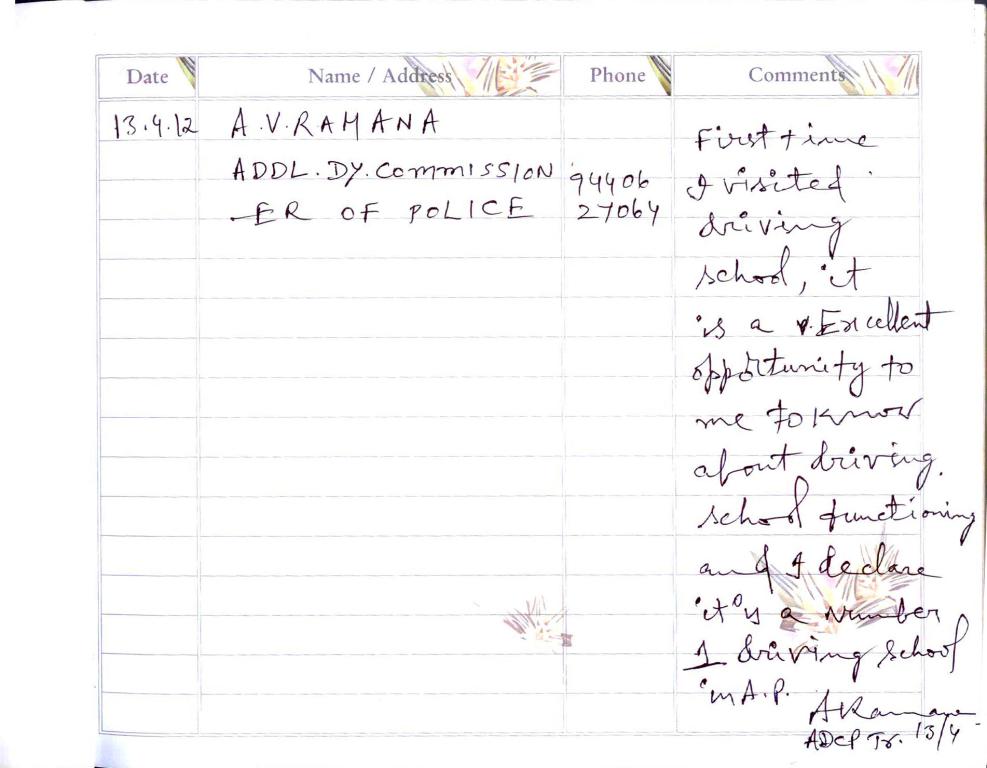 Date Name / Address Phone Comments
13.4.12 A.V.RAMANA
ADDL.DY.COMMISSION
-ER OF POLICE
94406
27064
First time
I visited
driving
school, it
is a v.Excellent
opportunity to
me to know
about driving.
school functioning
and I declare
it is a Number
1 driving school
in A.P.
ARamana
ADCP Tr. 13/4